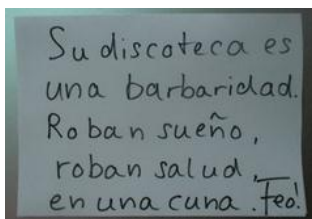 Su discoteca es
una barbaridad.
Roban sueño,
roban salud,
en una cuna. Feo!